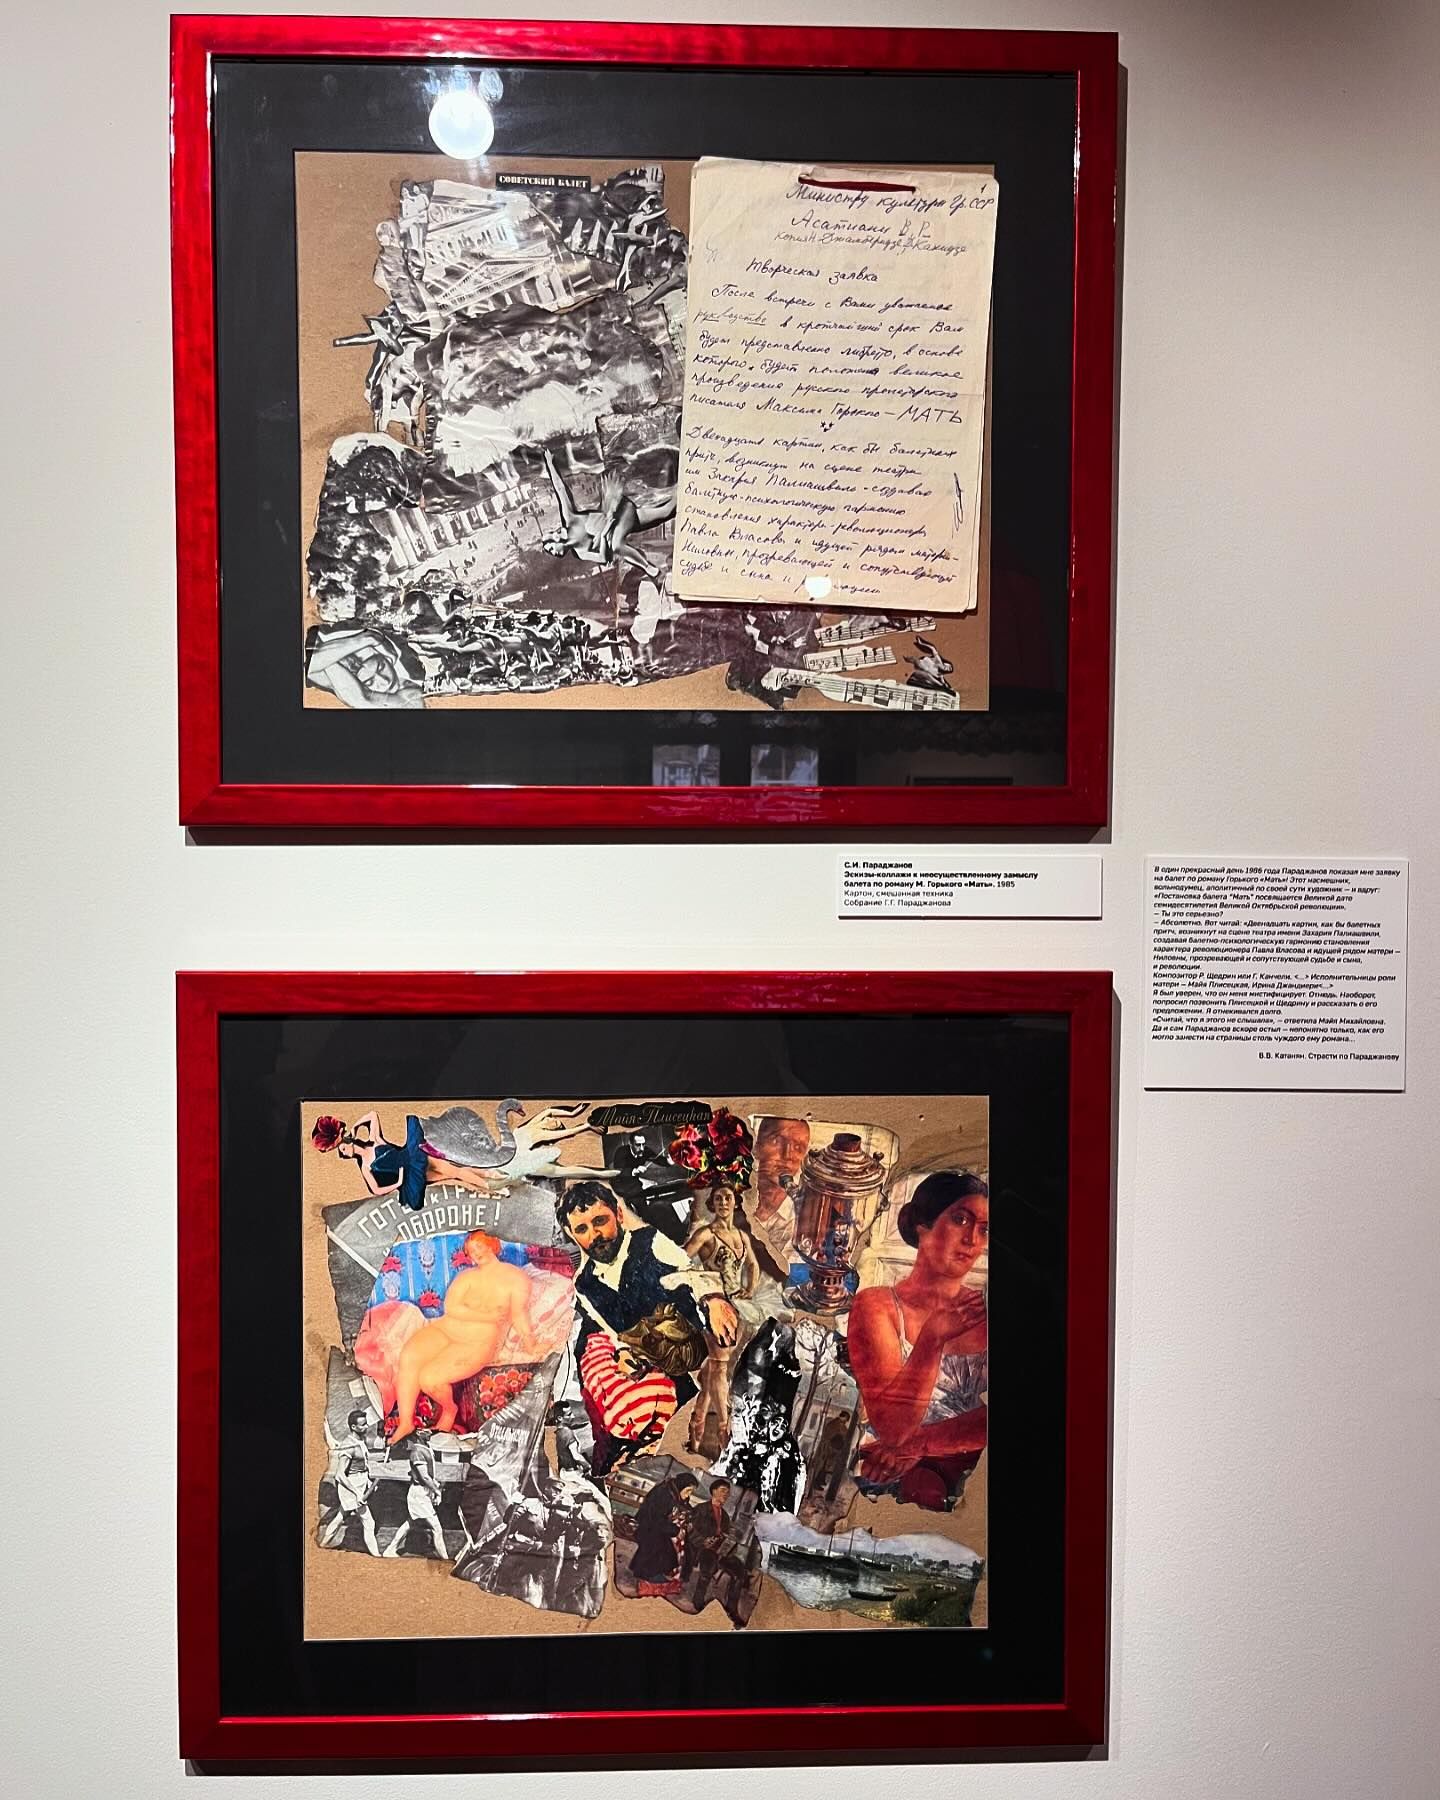 СОВЕТСКИЙ БАЛЕТ
1
Министру культуры Гр.ССР
Асатиани В. Р.
копия Н. Джанберидзе, Д. Какидзе
Творческая заявка
После встречи с Вами уважаемое
руководство в кротчайший срок Вам
будет представлено либретто, в основе
которого будет положена великое
произведение русского пролетарского
писателя Максима Горького – МАТЬ
Двенадцать картин, как бы балетных
притч, возникнут на сцене театра
им Захария Палиашвили – создавая
балетную-психологическую гармонию
становления характера-революционера
Павла Власова и идущей рядом матери–
Ниловны, прозревающей и сопутствующей
судьбе и сына и
С.И. Параджанов
Эскизы-коллажи к неосуществленному замыслу
балета по роману М. Горького «Мать». 1985
Картон, смешанная техника
Собрание Г.Г. Параджанова
В один прекрасный день 1986 года Параджанов показал мне заявку
на балет по роману Горького «Мать»! Этот насмешник,
вольнодумец, аполитичный по своей сути художник — и вдруг:
«Постановка балета "Мать" посвящается Великой дате
семидесятилетия Великой Октябрьской революции».
— Ты это серьезно?
— Абсолютно. Вот читай: «Двенадцать картин, как бы балетных
притч, возникнут на сцене театра имени Захария Палиашвили,
создавая балетно-психологическую гармонию становления
характера революционера Павла Власова и идущей рядом матери —
Ниловны, прозревающей и сопутствующей судьбе и сына,
и революции.
Композитор Р. Щедрин или Г. Канчели. <...> Исполнительницы роли
матери — Майя Плисецкая, Ирина Джандиери<...>
Я был уверен, что он меня мистифицирует. Отнюдь. Наоборот,
попросил позвонить Плисецкой и Щедрину и рассказать о его
предложении. Я отнекивался долго.
«Считай, что я этого не слышала», — ответила Майя Михайловна.
Да и сам Параджанов вскоре остыл — непонятно только, как его
могло занести на страницы столь чуждого ему романа...
В.В. Катанян. Страсти по Параджанову
Майя Плисецкая
ГОТОВ к ТРУДУ
и ОБОРОНЕ!